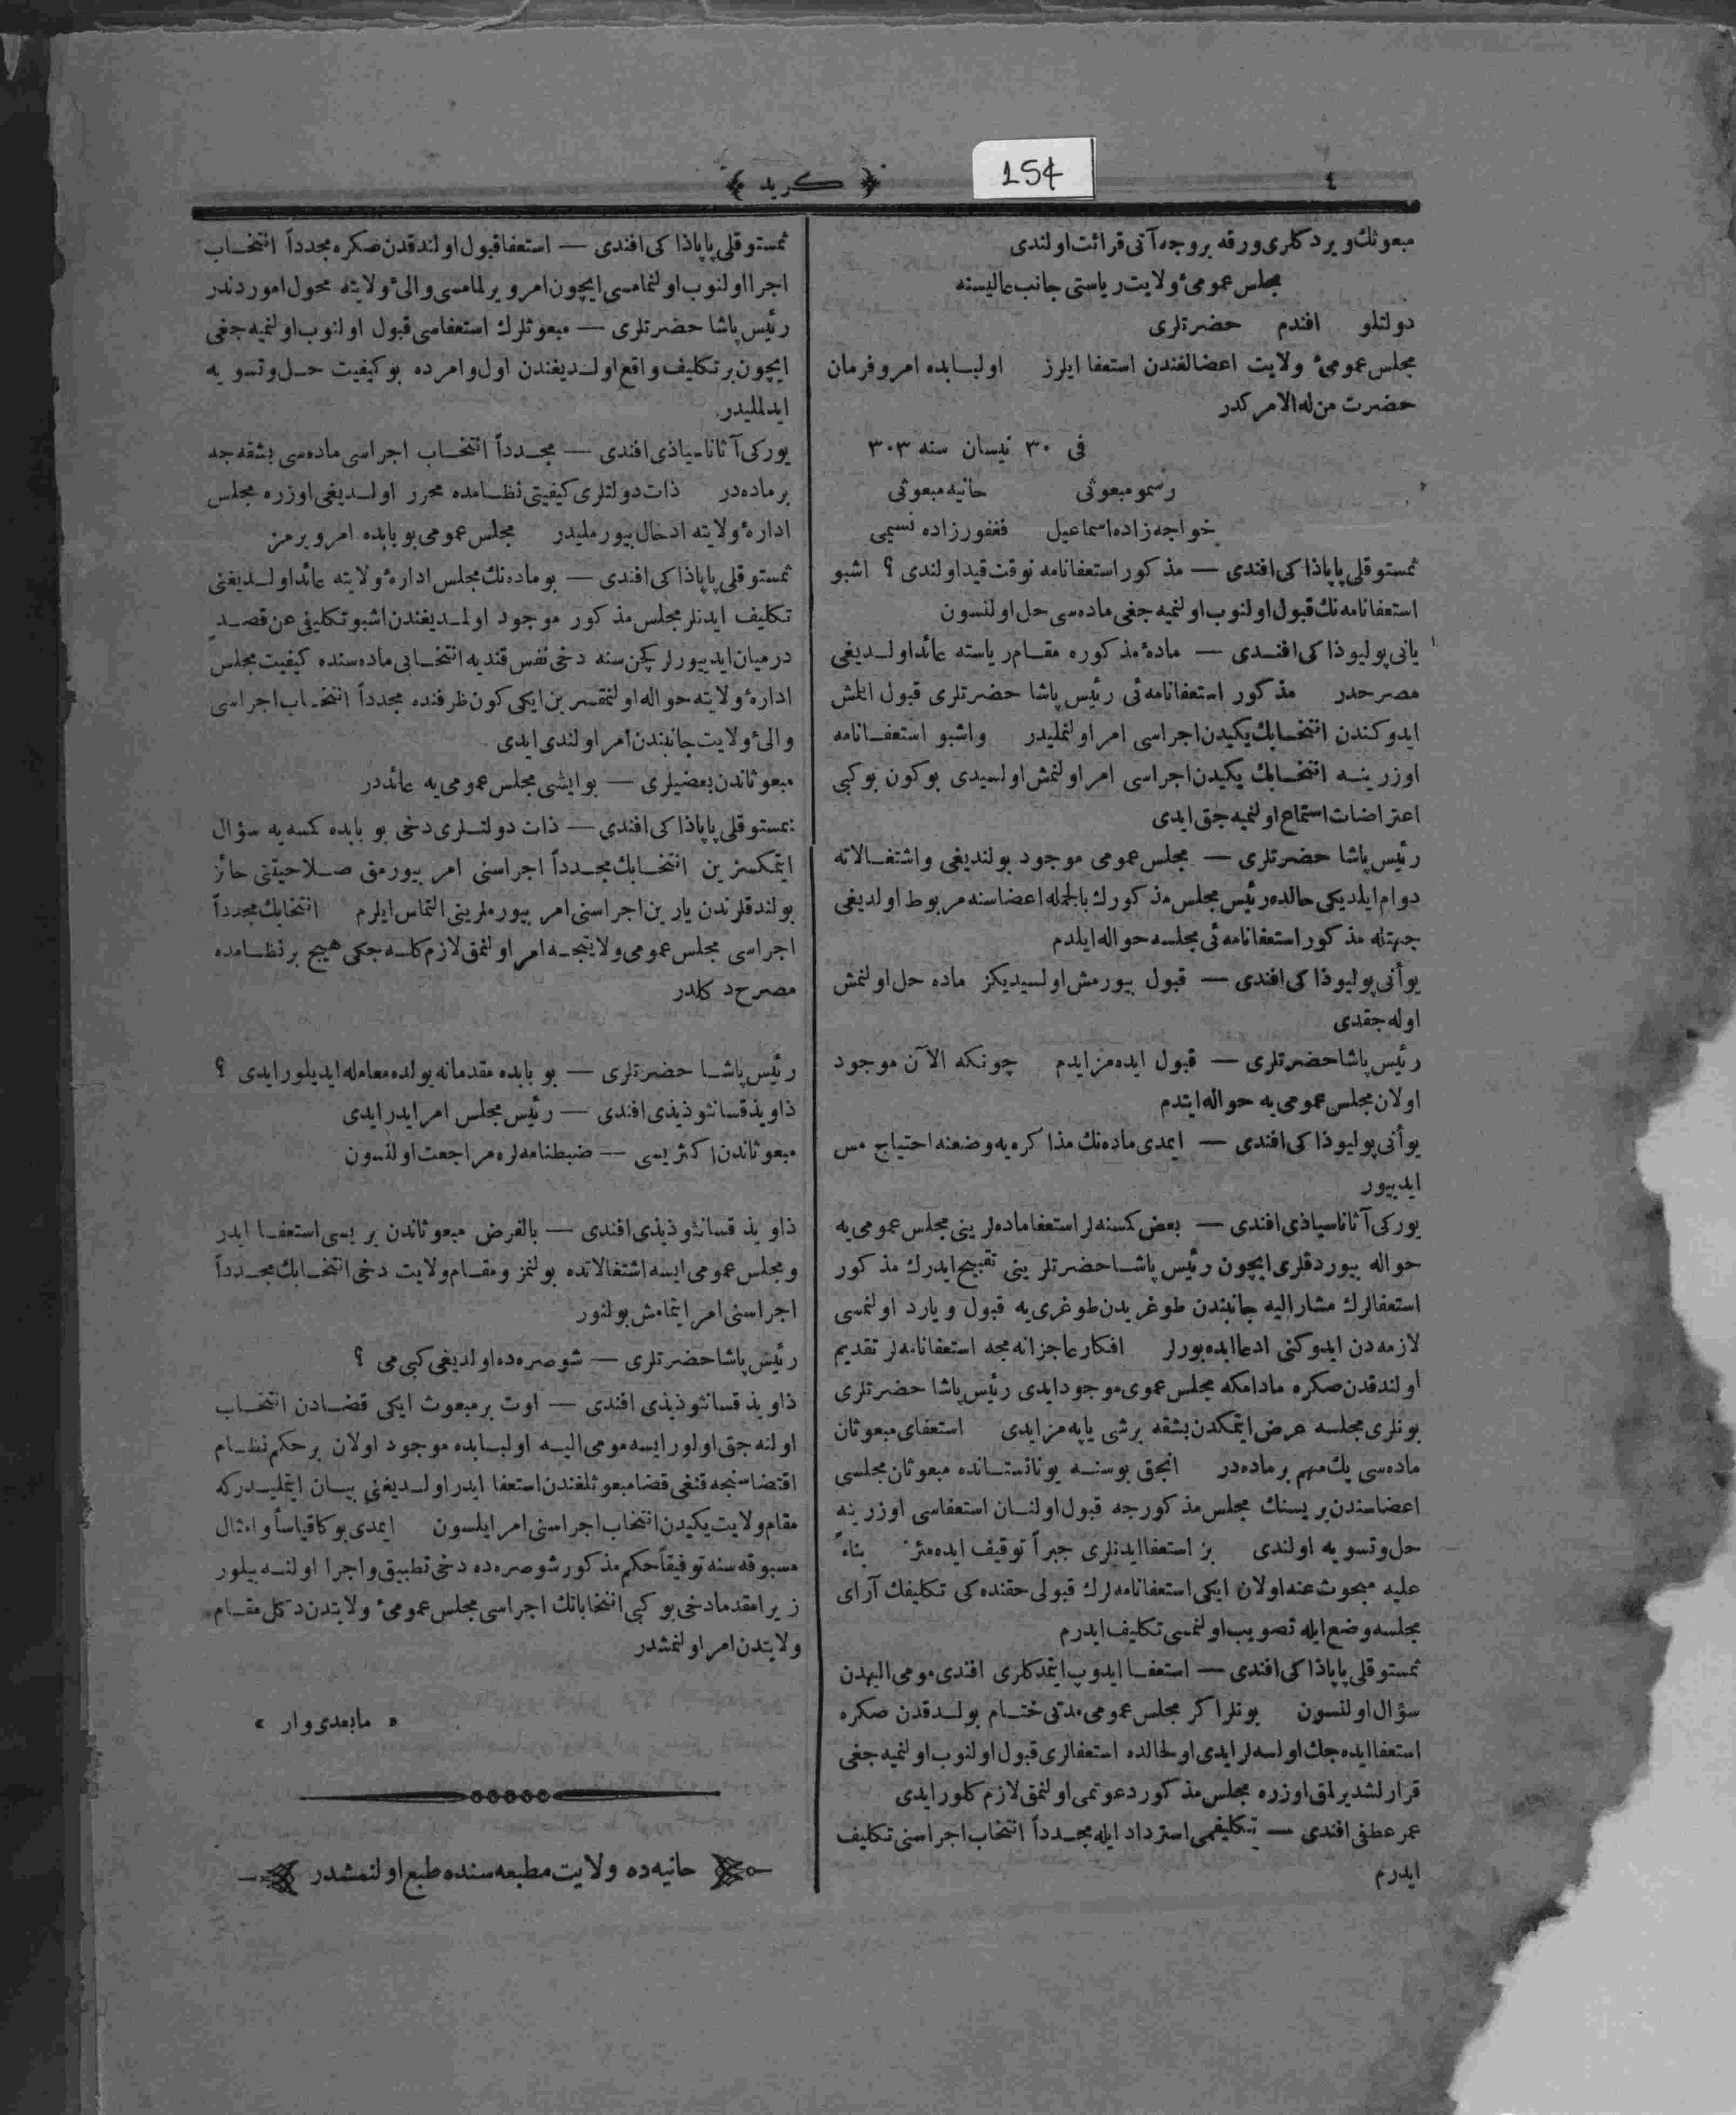 ٤
154
﴿ كريد ﴾
مبعوثك ويردكلرى ورقه بروجه آتى قرائت اولندى
مجلس عمومئ ولايت رياستى جانب عاليسنه
دولتلو افندم حضرتلرى
مجلس عمومئ ولايت اعضالغندن استعفا ايلرز اولبابده امر وفرمان
حضرت من له الامركدر
فى ٣٠ نيسان سنه ٣٠٣
رسمو مبعوثى حانيه مبعوثى
خواجه زاده اسماعيل فغفور زاده نسيمى
ثمستوقلى پاپاذاكى افندى — مذكور استعفانامه نوقت قيد اولندى ؟ اشبو
استعفانامه نك قبول اولنوب اولنميه جغى ماده سى حل اولنسون
يانى پوليوذاكى افندى — مادۀ مذكوره مقام رياسته عائد اولديغى
مصرحدر مذكور استعفانامه ئى رئيس پاشا حضرتلرى قبول ايلمش
ايدوكندن انتخابك يكيدن اجراسى امر اولنمليدر واشبو استعفانامه
اوزرينه انتخابك يكيدن اجراسى امر اولنمش اولسيدى بوكون بوكبى
اعتراضات استماع اولنميه جق ايدى
رئيس پاشا حضرتلرى — مجلس عمومى موجود بولنديغى واشتغالاته
دوام ايلديكى حالده رئيس مجلس مذكورك بالجمله اعضاسنه مربوط اولديغى
جهتله مذكور استعفانامه ئى مجلسه حواله ايلدم
يوأنى پوليوذاكى افندى — قبول بيورمش اولسيديكز ماده حل اولنمش
اوله جقدى
رئيس پاشا حضرتلرى — قبول ايده مز ايدم چونكه الآن موجود
اولان مجلس عمومى يه حواله ايتدم
يوأنى پوليوذاكى افندى — ايمدى ماده نك مذاكره يه وضعنه احتياج مس
ايدييور
يوركى آثاناسياذى افندى — بعض كمسنه لر استعفا ماده لرينى مجلس عمومى يه
حواله بيوردقلرى ايچون رئيس پاشا حضرتلرينى تقبيح ايدرك مذكور
استعفالرك مشاراليه جانبندن طوغريدن طوغرى يه قبول ويا رد اولنمسى
لازمه دن ايدوكنى ادعا ايده بورلر افكار عاجزانه مجه استعفانامه لر تقديم
اولندقدن صكره مادامكه مجلس عمومى موجود ايدى رئيس پاشا حضرتلرى
بونلرى مجلسه عرض ايتمكدن بشقه برشى ياپه مز ايدى استعفاى مبعوثان
ماده سى پك مهم بر ماده در انجق بوسنه يونانستانده مبعوثان مجلسى
اعضاسندن بريسنك مجلس مذكورجه قبول اولنان استعفاسى اوزرينه
حل وتسويه اولندى بز استعفا ايدنلرى جبراً توقيف ايده مز بناءً
عليه مبحوث عنه اولان ايكى استعفانامه لرك قبولى حقنده كى تكليفك آراى
مجلسه وضع ايله تصويب اولنمسى تكليف ايدرم
ثمستوقلى پاپاذاكى افندى — استعفا ايدوب ايتمدكلرى افندى مومى اليهدن
سؤال اولنسون بونلر اكر مجلس عمومى مدتى ختام بولدقدن صكره
استعفا ايده جك اولسه لر ايدى اولحالده استعفالرى قبول اولنوب اولنميه جغى
قرارلشديرلمق اوزره مجلس مذكور دعوتمى اولنمق لازم كلور ايدى
عمر عطفى افندى — تكليفمى استرداد ايله مجدداً انتخاب اجراسنى تكليف
ايدرم
ثمستوقلى پاپاذاكى افندى — استعفا قبول اولندقدن صكره مجدداً انتخاب
اجرا اولنوب اولنمامسى ايچون امر ويرلمامسى والئ ولايته محول اموردندر
رئيس پاشا حضرتلرى — مبعوثلرك استعفاسى قبول اولنوب اولنميه جغى
ايچون بر تكليف واقع اولديغندن اول وامرده بوكيفيت حل وتسويه
ايدلمليدر
يوركى آثاناسياذى افندى — مجدداً انتخاب اجراسى ماده سى بشقه جه
بر ماده در ذات دولتلرى كيفيتى نظامده محرر اولديغى اوزره مجلس
ادارۀ ولايته ادخال بيورمليدر مجلس عمومى بو بابده امر ويرمز
ثمستوقلى پاپاذاكى افندى — بوماده نك مجلس ادارۀ ولايته عائد اولديغنى
تكليف ايدنلر مجلس مذكور موجود اولمديغندن اشبو تكليفى عن قصد
درميان ايدييورلر كچن سنه دخى نفس قنديه انتخابى ماده سنده كيفيت مجلس
ادارۀ ولايته حواله اولنمقسزين ايكى كون ظرفنده مجدداً انتخاب اجراسى
والئ ولايت جانبندن امر اولندى ايدى
مبعوثاندن بعضيلرى — بو ايشى مجلس عمومى يه عائددر
ثمستوقلى پاپاذاكى افندى — ذات دولتلرى دخى بو بابده كمسه يه سؤال
ايتمكسزين انتخابك مجدداً اجراسنى امر بيورمق صلاحيتنى حائز
بولندقلرندن يارين اجراسنى امر بيورملرينى التماس ايلرم انتخابك مجدداً
اجراسى مجلس عمومى ولايتجه امر اولنمق لازم كله جكى هيچ بر نظامده
مصرح دكلدر
رئيس پاشا حضرتلرى — بو بابده مقدما نه يولده معامله ايديلور ايدى ؟
ذاويذ قسانثوذيذى افندى — رئيس مجلس امر ايدر ايدى
مبعوثاندن اكثريسى — ضبطنامه لره مراجعت اولنسون
ذاويذ قسانثوذيذى افندى — بالفرض مبعوثاندن بريسى استعفا ايدر
ومجلس عمومى ايسه اشتغالاتده بولنمز ومقام ولايت دخى انتخابك مجدداً
اجراسنى امر ايتمامش بولنور
رئيس پاشا حضرتلرى — شو صره ده اولديغى كبى مى ؟
ذاويذ قسانثوذيذى افندى — اوت بر مبعوث ايكى قضادن انتخاب
اولنه جق اولور ايسه مومى اليه اولبابده موجود اولان بر حكم نظام
اقتضاسنجه قنغى قضا مبعوثلغندن استعفا ايدر اولديغنى بيان ايتمليدركه
مقام ولايت يكيدن انتخاب اجراسنى امر ايلسون ايمدى بوكا قياساً وامثال
مسبوقه سنه توفيقاً حكم مذكور شو صره ده دخى تطبيق واجرا اولنه بيلور
زيرا مقدما دخى بوكبى انتخاباتك اجراسى مجلس عمومئ ولايتدن دكل مقام
ولايتدن امر اولنمشدر
« مابعدى وار »
حانيه ده ولايت مطبعه سنده طبع اولنمشدر